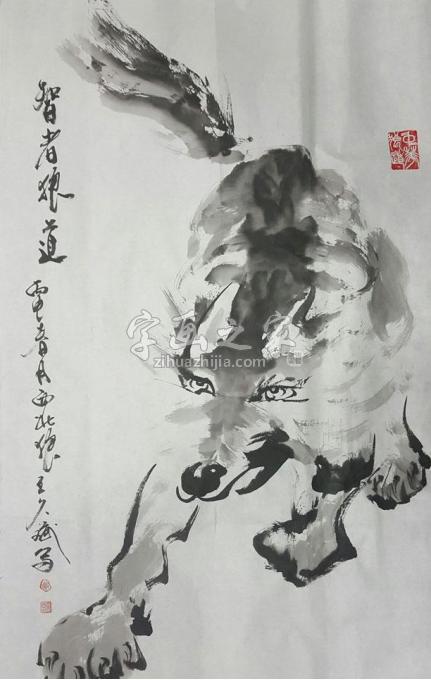 智者狼道
月西北狼王久斌写
字画之家
zihuazhijia.com